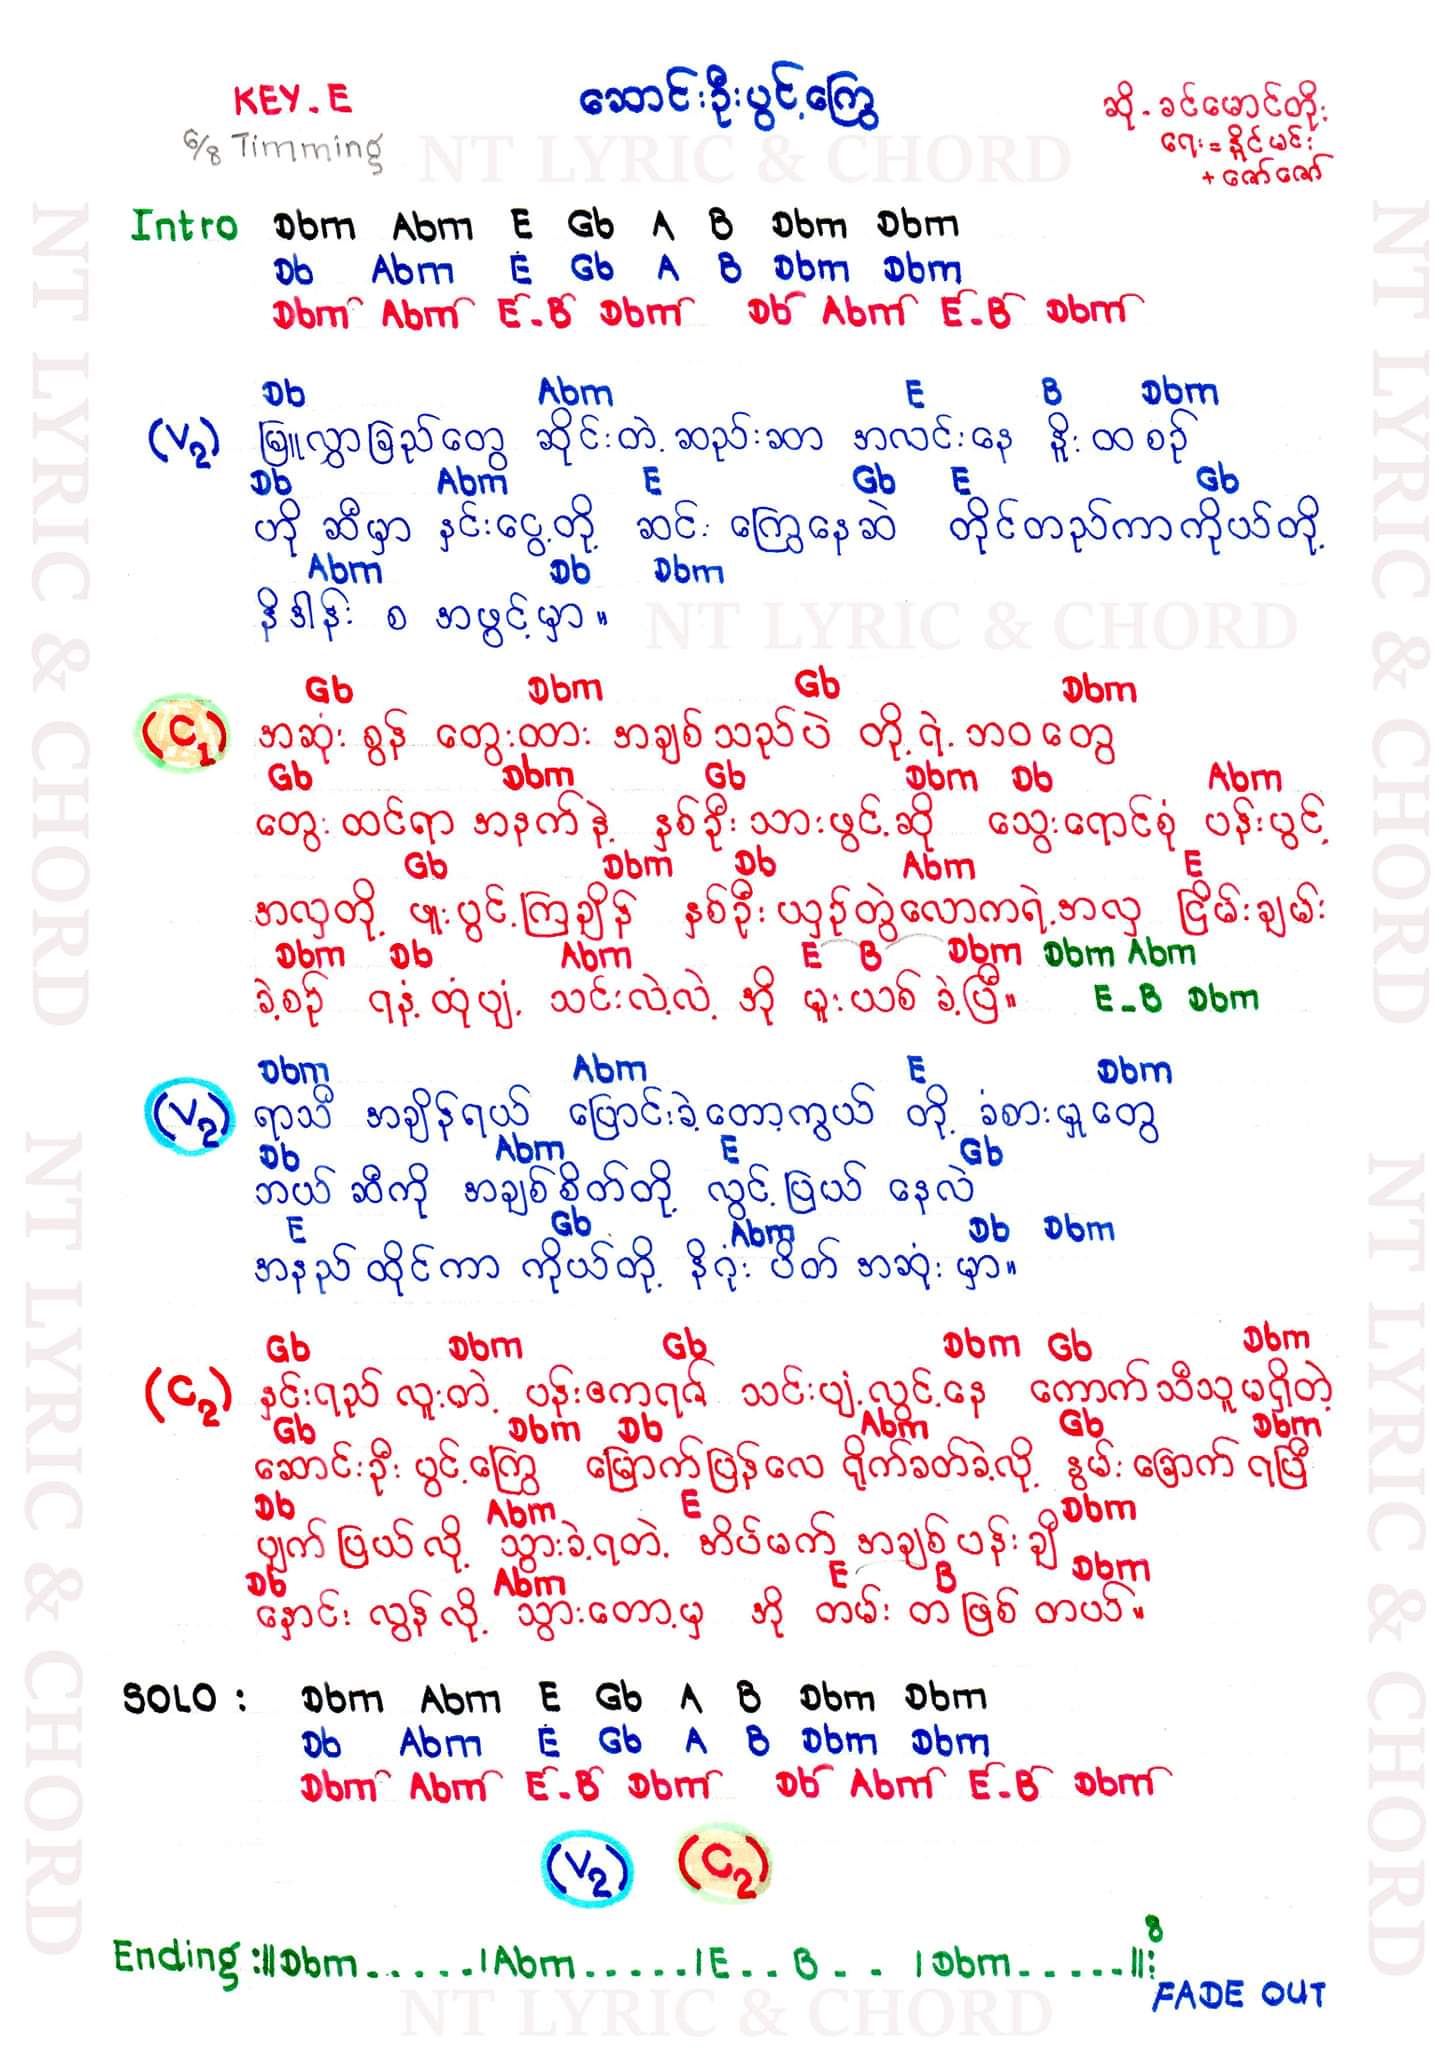 KEY - E
ဆောင်းဦးပွင့်ကြွေ
ဆို - ခင်မောင်တိုး
6/8 Timming
ရေး = နိုင်မင်း
+ ဇော်ဇော်
NT LYRIC & CHORD
Intro Dbm Abm E Gb A B Dbm Dbm
Db Abm E Gb A B Dbm Dbm
Dbm Abm E - B Dbm Db Abm E - B Dbm
Db Abm E B Dbm
(V2) ဖြူလွှာခြည်တွေ ဆိုင်းတဲ့ ဆည်းဆာ အလင်းနေ နိုးထစဉ်
Db Abm E Gb E Gb
ဟိုဆီမှာ နှင်းငွေ့တို့ ဆင်းကြွေနေဆဲ တိုင်တည်ကာကိုယ်တို့
Abm Db Dbm
နိဒါန်း စ အဖွင့်မှာ။
NT LYRIC & CHORD
Gb Dbm Gb Dbm
(C1) အဆုံးစွန် တွေးထား အချစ်သည်ပဲ တို့ရဲ့ဘဝတွေ
Gb Dbm Gb Dbm Db Abm
တွေးထင်ရာ အနက်နဲ့ နှစ်ဦးသားဖွင့်ဆို သွေးရောင်စုံ ပန်းပွင့်
Gb Dbm Db Abm E
အလှတို့ ဖူးပွင့်ကြချိန် နှစ်ဦးယှဉ်တွဲလောကရဲ့အလှ ငြိမ်းချမ်း
Dbm Db Abm E B Dbm Dbm Abm
ခဲ့စဉ် ရနံ့ထုံပျံ့ သင်းလဲ့လဲ့ အို မူးယစ်ခဲ့ပြီ။ E - B Dbm
Dbm Abm E Dbm
(V2) ရာသီ အချိန်ရယ် ပြောင်းခဲ့တော့ကွယ် တို့ ခံစားမှုတွေ
Db Abm E Gb
ဘယ်ဆီကို အချစ်စိတ်တို့ လွင့်ပြယ်နေလဲ
E Gb Abm Db Dbm
အနည်ထိုင်ကာ ကိုယ်တို့ နိဂုံးပိတ်အဆုံးမှာ။
Gb Dbm Gb Dbm Gb Dbm
(C2) နှင်းရည်လူးတဲ့ ပန်းဧကရာဇ် သင်းပျံ့လွင့်နေ ကောက်သီသူမရှိတဲ့
Gb Dbm Db Abm Gb Dbm
ဆောင်းဦးပွင့်ကြွေ မြောက်ပြန်လေ ရိုက်ခတ်ခဲ့လို့ နွမ်းခြောက်ရပြီ
Db Abm E Dbm
ပျက်ပြယ်လို့ သွားခဲ့ရတဲ့ အိပ်မက် အချစ်ပန်းချီ
Db Abm E B Dbm
နှောင်းလွန်လို့ သွားတော့မှ အို တမ်းတဖြစ်တယ်။
SOLO : Dbm Abm E Gb A B Dbm Dbm
Db Abm E Gb A B Dbm Dbm
Dbm Abm E - B Dbm Db Abm E - B Dbm
(V2) (C2)
8
Ending :||Dbm.....|Abm.....|E..B..|Dbm.....||:
FADE OUT
NT LYRIC & CHORD
NT LYRIC & CHORD
NT LYRIC & CHORD
NT LYRIC & CHORD
NT LYRIC & CHORD